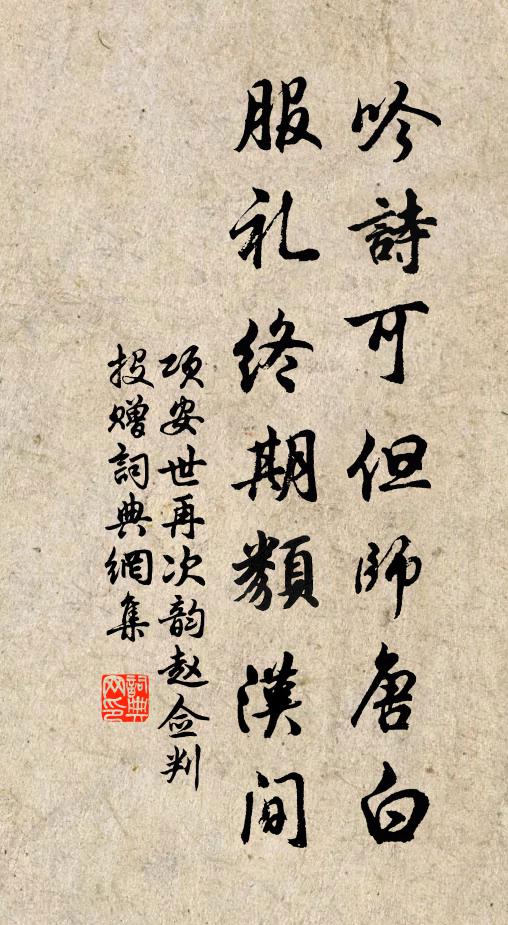 吟詩可但師唐白
服礼終期類漢间
项安世再次韵赵佥判
投赠詞典網集
詞典网印